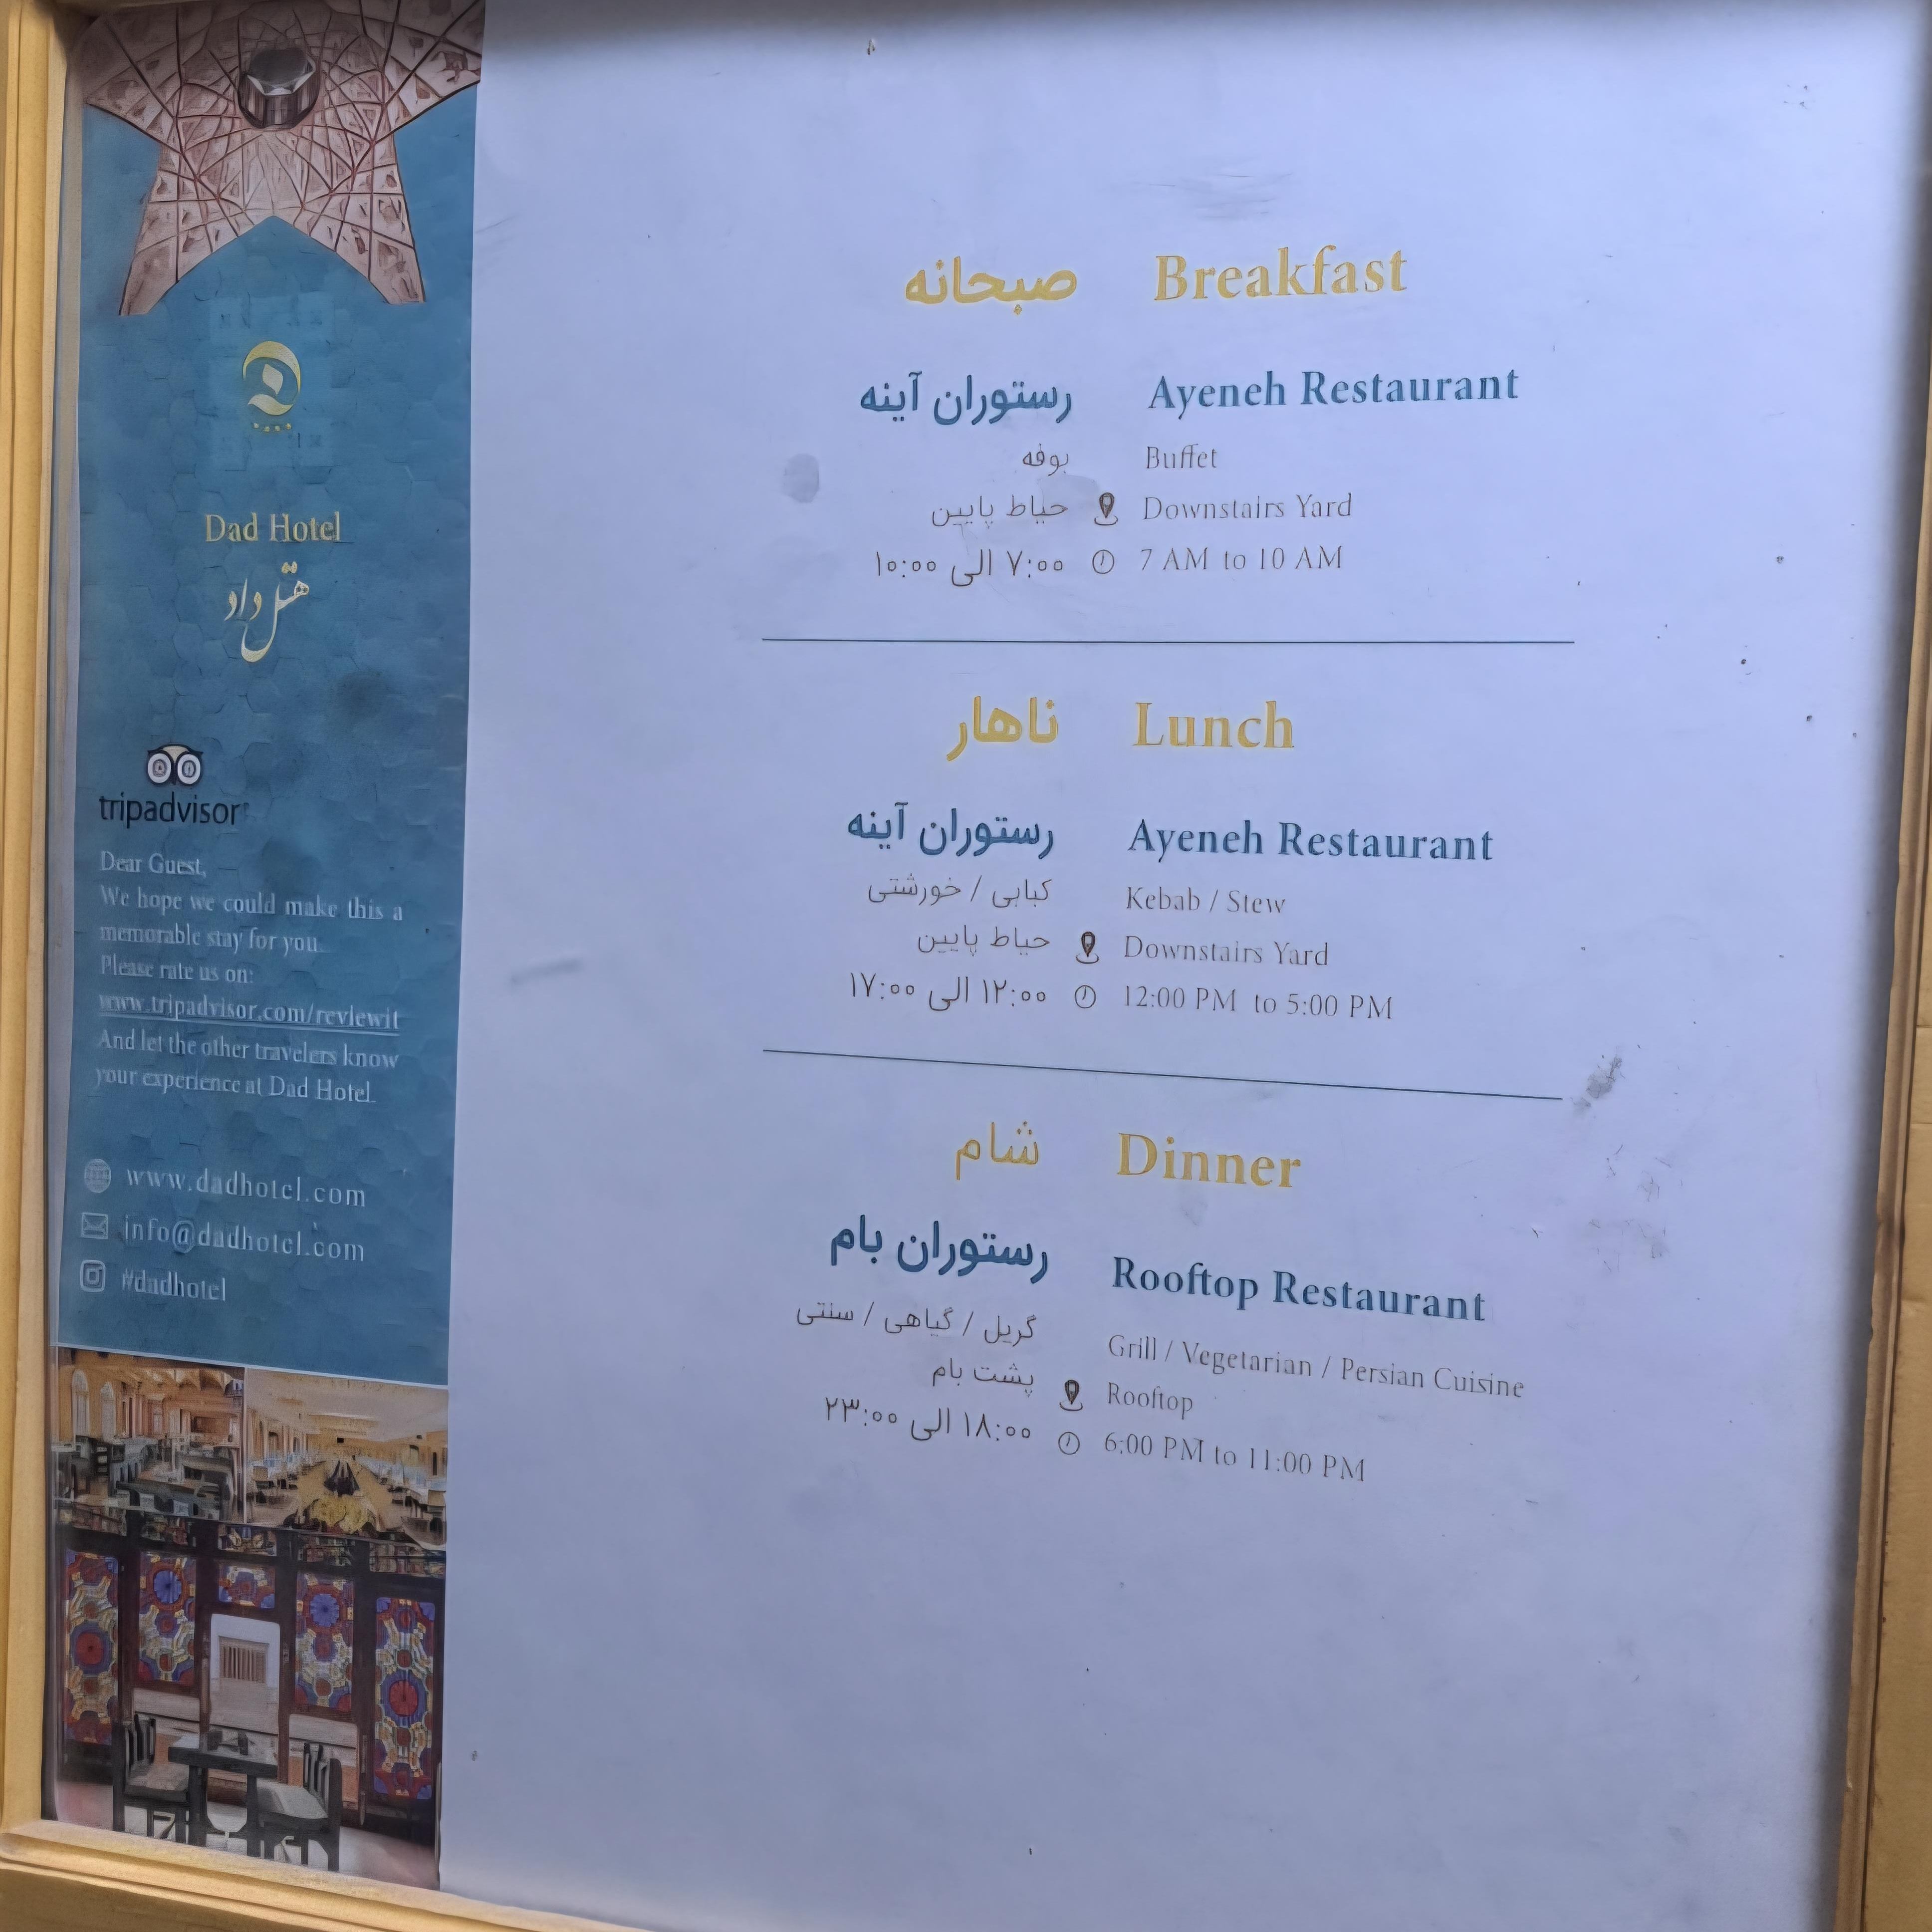 Dad Hotel
هتل داد
tripadvisor
Dear Guest,
We hope we could make this a
memorable stay for you.
Please rate us on:
www.tripadvisor.com/reviewit
And let the other travelers know
your experience at Dad Hotel.
www.dadhotel.com
info@dadhotel.com
#dadhotel
صبحانه Breakfast
رستوران آینه Ayeneh Restaurant
بوفه Buffet
حیاط پایین Downstairs Yard
۷:۰۰ الی ۱۰:۰۰ 7 AM to 10 AM
ناهار Lunch
رستوران آینه Ayeneh Restaurant
کبابی / خورشتی Kebab / Stew
حیاط پایین Downstairs Yard
۱۲:۰۰ الی ۱۷:۰۰ 12:00 PM to 5:00 PM
شام Dinner
رستوران بام Rooftop Restaurant
گریل / گیاهی / سنتی Grill / Vegetarian / Persian Cuisine
پشت بام Rooftop
۱۸:۰۰ الی ۲۳:۰۰ 6:00 PM to 11:00 PM